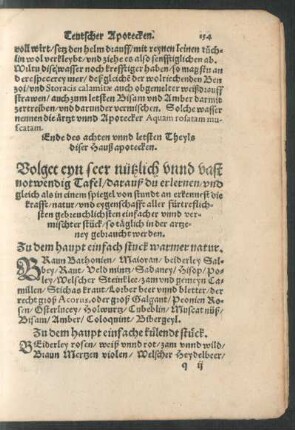 Teutscher Apotecken. 154
voll wirt/ setz den helm drauff/ mit reynen leinen tüch-
lin wol verkleybt/ vnd ziehe es also senfftiglichen ab.
Wiltu diß wasser noch krefftiger haben/ so magstu an
der specerey mer/ deßgleichē der wolriechenden Ben
zoi/ vnd Storacis calamitæ auch obgemelter weiß drauff
strawen/ auch zum letsten Bisam vnd Amber darmit
zertreiben/ vnd darunder vermischen. Solche wasser
nennen die ärtzt vnnd Apotecker Aquam rosatam mu-
scatam.
Ende des achten vnnd letsten Theyls
diser Haußapotecken.
Volget eyn seer nützlich vnnd vast
notwendig Tafel/ darauß du erlernen/ vnd
gleich als in einem spiegel von stundan erkennest die
krafft/ natur/ vnd eygenschafft aller fürtrefflich-
sten gebreuchlichsten einfacher vnnd ver-
mischter stück/ so täglich in der artze-
ney gebraucht werden.
Zu dem haupt einfach stuck warmer natur.
BRaun Bathonien/ Maioran/ beiderley Sal-
bey/ Raut/ Veldmüntz/ Sabaney/ Hisop/ Po-
ley/ Welscher Steinklee/ zam vnd gemeyn Ca-
millen/ Stichas kraut/ Lorber beer vnnd bletter/ der
recht groß Acorus/ oder groß Galgant/ Peonien Ro-
sen/ Osterlucey/ Holwurtz/ Cubeblin/ Muscat nüß/
Bisam/ Amber/ Coloquint/ Bibergeyl.
Zu dem haupt einfache külende stück.
BEiderley rosen/ weiß vnnd rot/ zam vnnd wild/
Braun Mertzen violen/ Welscher Heydelbeer/
q ij